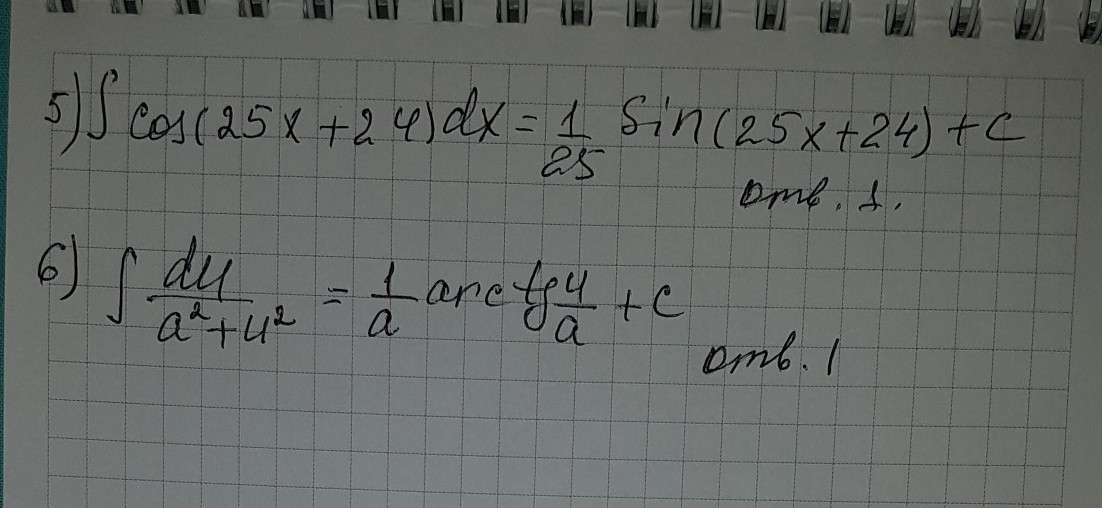 5) ∫ cos(25x+24)dx = 1/25 Sin(25x+24) + c
отв. 1.
6) ∫ du/(a²+u²) = 1/a arctg u/a + c
отв. 1